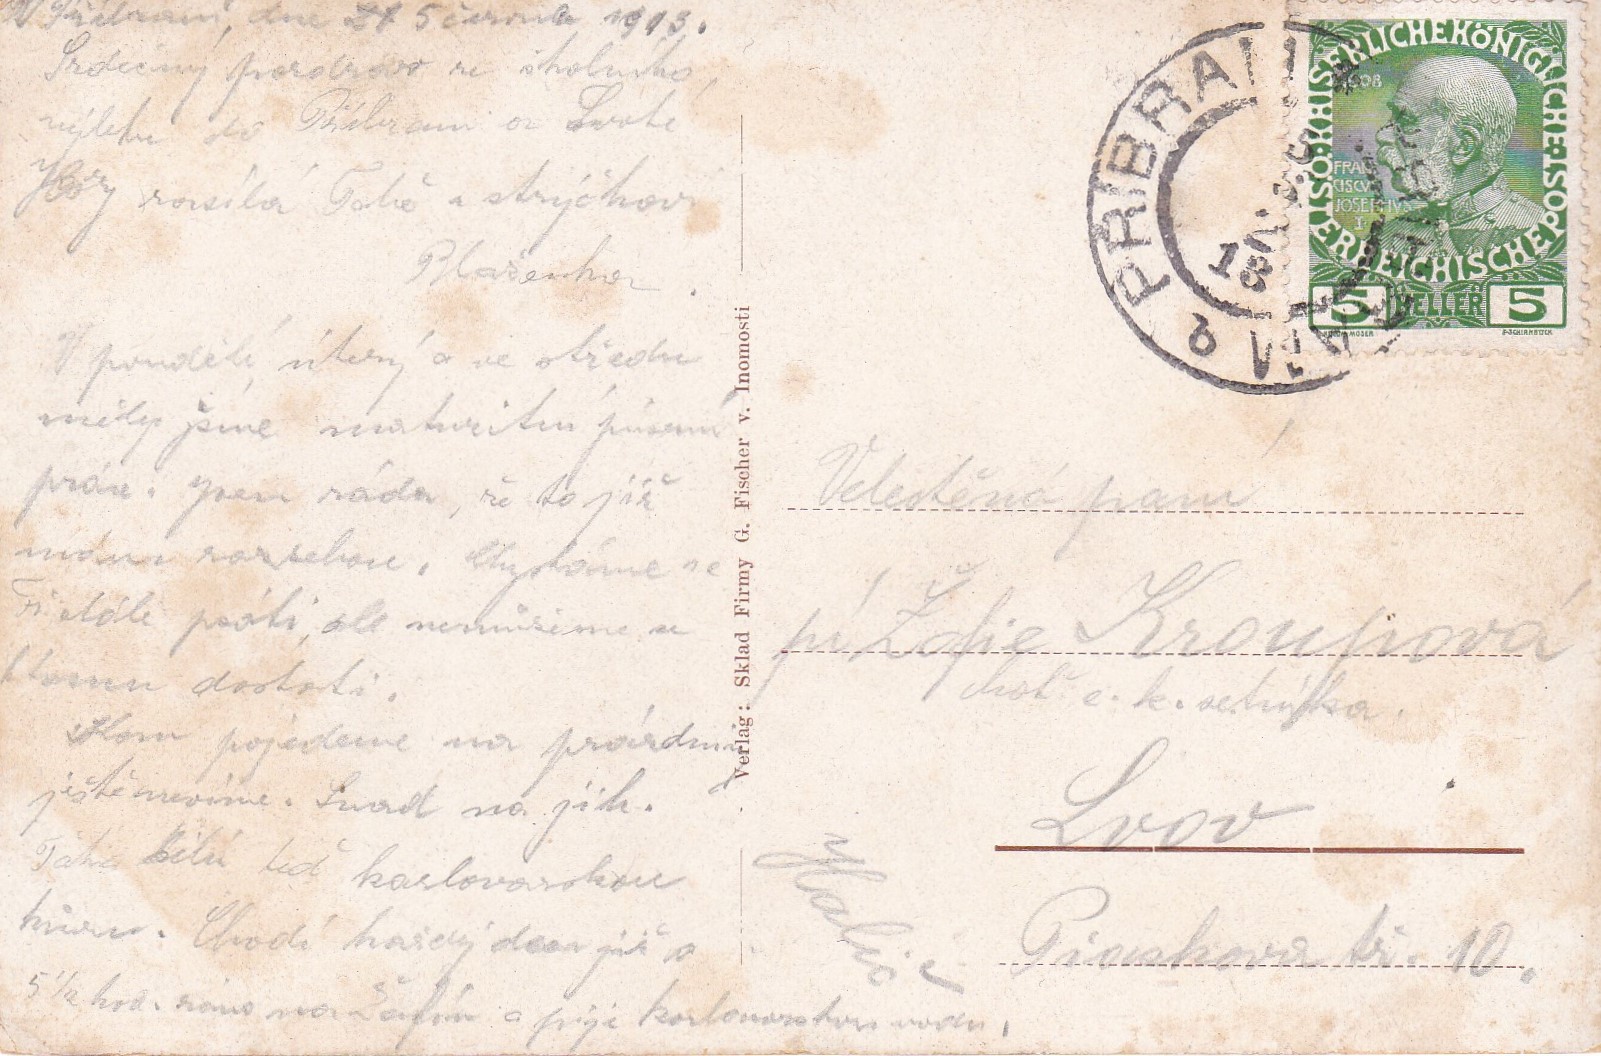 V Příbrami, dne 5 června 1913.
Srdečný pozdrav ze školního
výletu do Příbrami a Svaté
Hory zasílá Táťa a strýčkovi
Blaženka.
V pondělí, úterý a ve středu
měly jsme maturitní písemní
práce. Jsem ráda, že to již
mám za sebou. Chystáme se
Tě stále psáti, ale nemůžeme se
k tomu dostati.
Kam pojedeme na prázdniny
ještě nevíme. Snad na jih.
teď karlovarskou
kúru. Chodí každý den již o
5 1/2 hod. ráno na Žofín a pije karlovarskou vodu.
Verlag: Sklad Firmy G. Fischer v. Inomosti
PŘÍBRAM
KAISERLICHE KÖNIGLICHE ÖSTERREICHISCHE POST
1908
FRAN
CISCVS
JOSEPHVS
I
5 HELLER 5
Velectěná paní
pí Žofie Kroupová
choť c. k. setníka.
Lvov
Halič
Piaskova tř. 10.